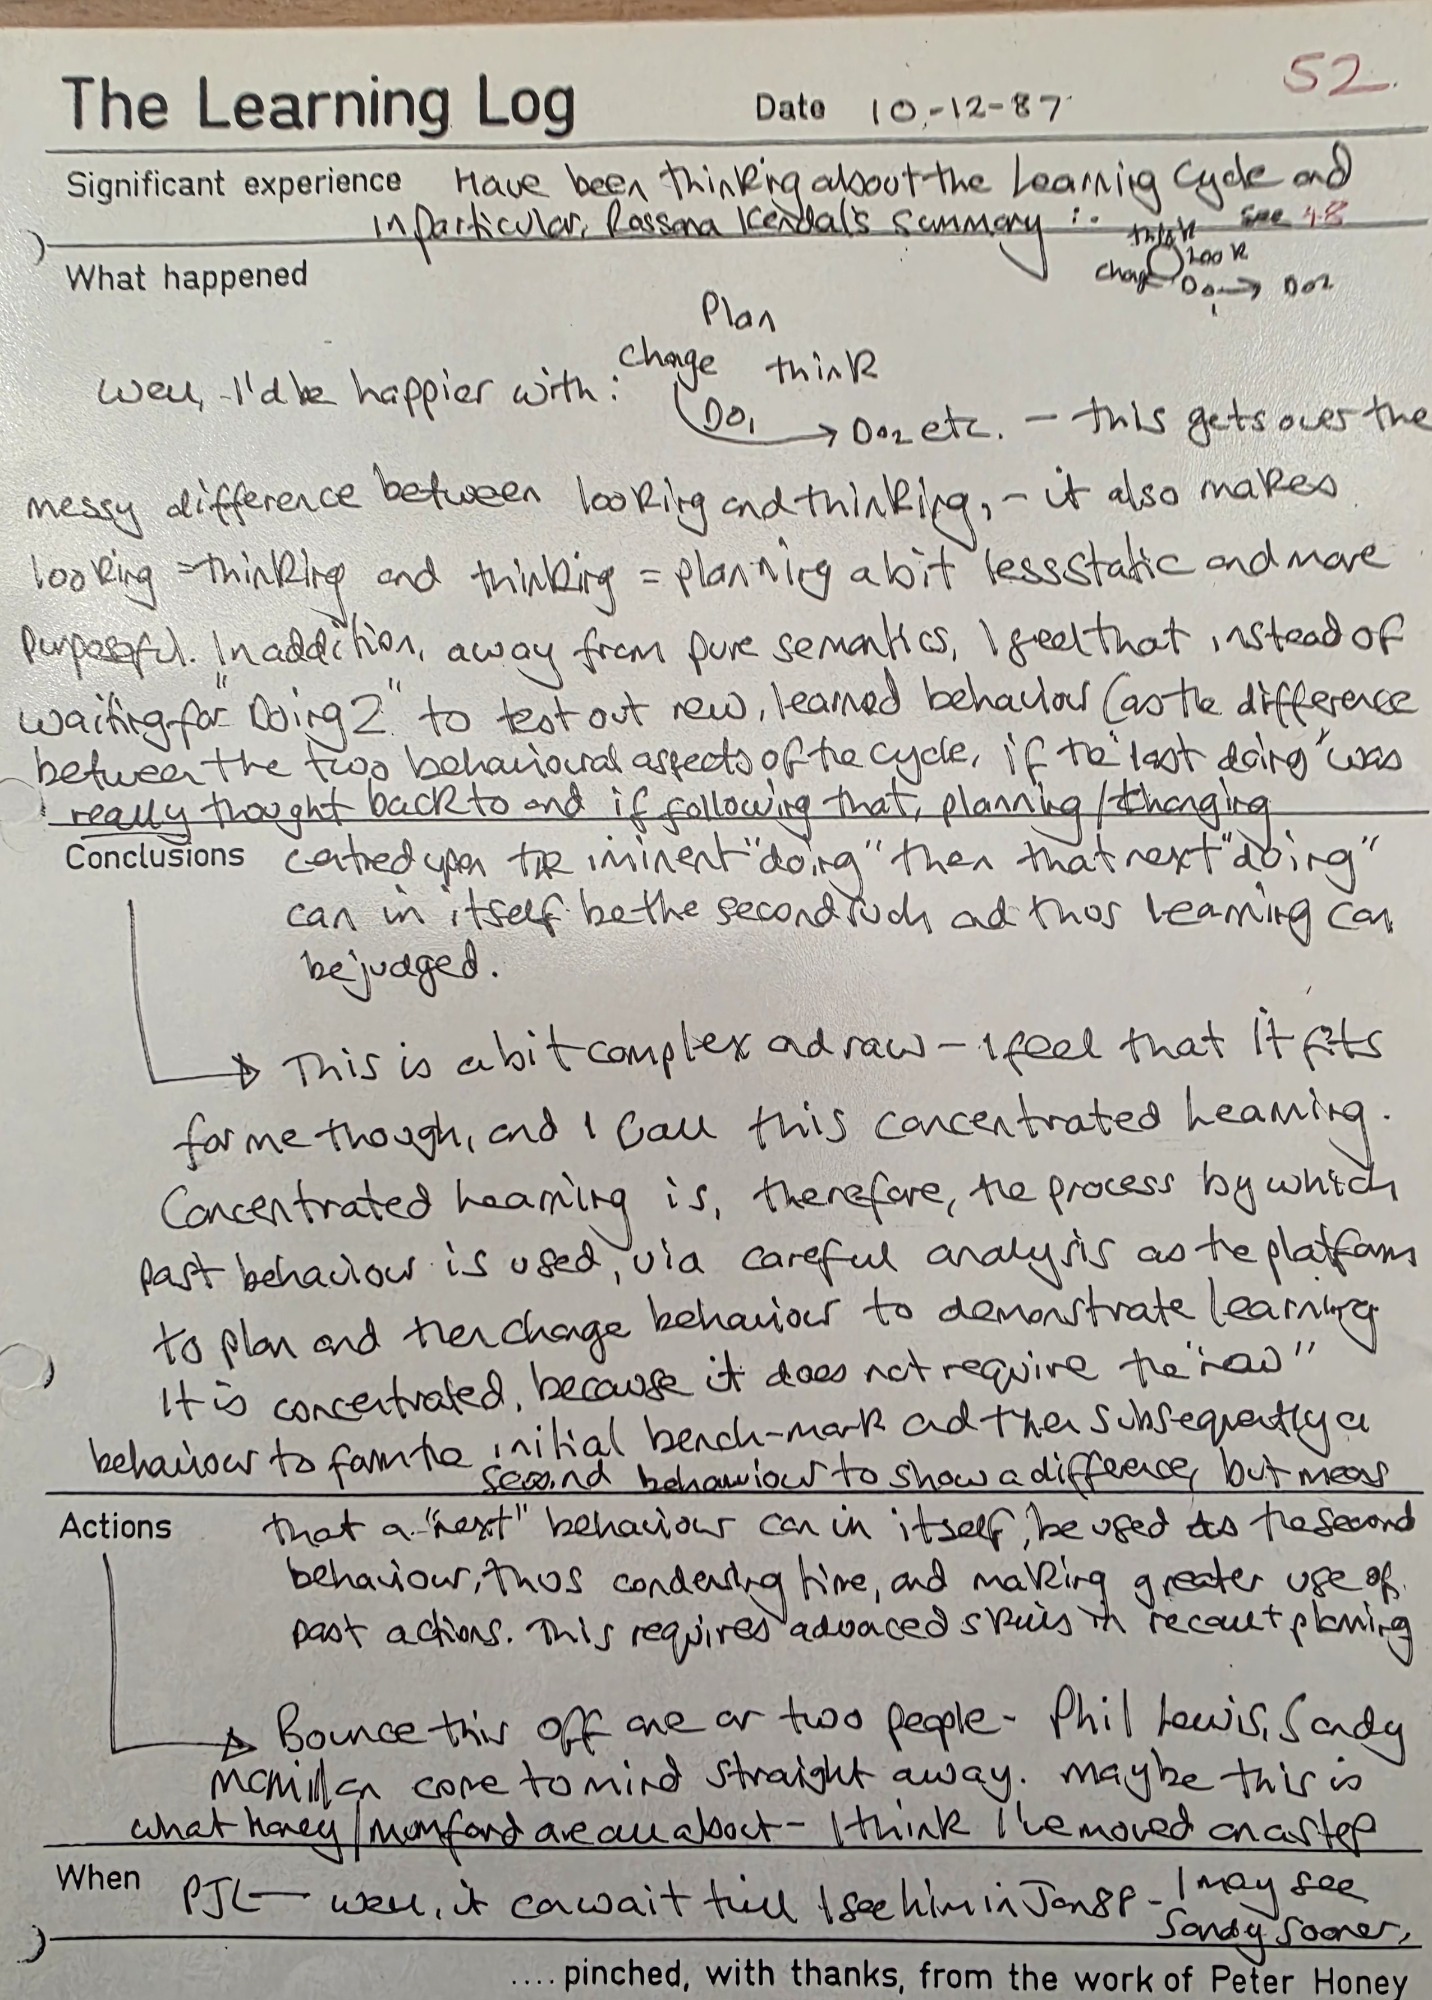 52.
The Learning Log Date 10-12-87
Significant experience Have been thinking about the Learning Cycle and
in particular, Rassana Kendal's summary :- see 48
think
look
change Do1 → Do2
What happened
Plan
change think
well, I'd be happier with :
Do1 → Do2 etc. – this gets over the
messy difference between looking and thinking, – it also makes
looking = thinking and thinking = planning a bit less static and more
purposeful. In addition, away from pure semantics, I feel that instead of
waiting for "Doing 2" to test out new, learned behaviour (as the difference
between the two behavioural aspects of the cycle, if the "last doing" was
really thought back to and if following that, planning/changing
Conclusions centred upon the iminent "doing" then that next "doing"
can in itself be the second such and thus learning can
be judged.
This is a bit complex and raw – I feel that it fits
for me though, and I call this concentrated Learning.
Concentrated Learning is, therefore, the process by which
past behaviour is used, via careful analysis as the platform
to plan and then change behaviour to demonstrate learning
It is concentrated, because it does not require the "raw"
behaviour to form the initial bench-mark and then subsequently a
second behaviour to show a difference, but means
Actions that a "next" behaviour can in itself, be used as the second
behaviour, thus condensing time, and making greater use of
past actions. This requires advanced skills in recall + planning
Bounce this off one or two people – Phil Lewis, Sandy
McMillan come to mind straight away. maybe this is
what Honey/Mumford are all about – I think I've moved on a step
When PJL — well, it can wait till I see him in Jan 88 – I may see
Sandy sooner,
.... pinched, with thanks, from the work of Peter Honey